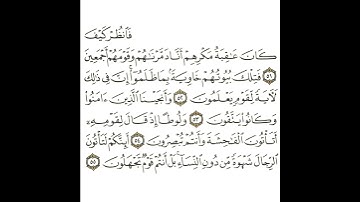 فَٱنظُرْ كَيْفَ
كَانَ عَٰقِبَةُ مَكْرِهِمْ أَنَّا دَمَّرْنَٰهُمْ وَقَوْمَهُمْ أَجْمَعِينَ
﴿٥١﴾ فَتِلْكَ بُيُوتُهُمْ خَاوِيَةًۢ بِمَا ظَلَمُوٓا۟ ۗ إِنَّ فِى ذَٰلِكَ
لَءَايَةً لِّقَوْمٍ يَعْلَمُونَ ﴿٥٢﴾ وَأَنجَيْنَا ٱلَّذِينَ ءَامَنُوا۟
وَكَانُوا۟ يَتَّقُونَ ﴿٥٣﴾ وَلُوطًا إِذْ قَالَ لِقَوْمِهِۦٓ
أَتَأْتُونَ ٱلْفَٰحِشَةَ وَأَنتُمْ تُبْصِرُونَ ﴿٥٤﴾ أَئِنَّكُمْ لَتَأْتُونَ
ٱلرِّجَالَ شَهْوَةً مِّن دُونِ ٱلنِّسَآءِ ۚ بَلْ أَنتُمْ قَوْمٌ تَجْهَلُونَ
﴿٥٥﴾